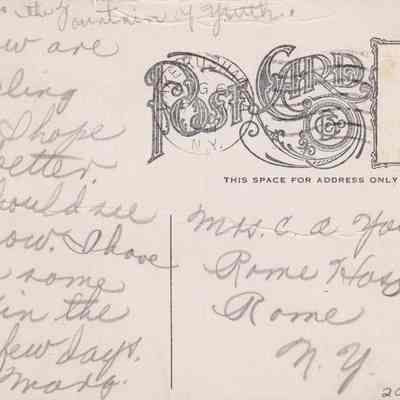 the Fountain of Youth.
ow are
eling
I hope
better.
should see
now. I have
some
in the
few days.
Marg.
POST CARD
N.Y.
THIS SPACE FOR ADDRESS ONLY
Mrs. C. A. Yo
Rome Hos
Rome
N. Y.
20